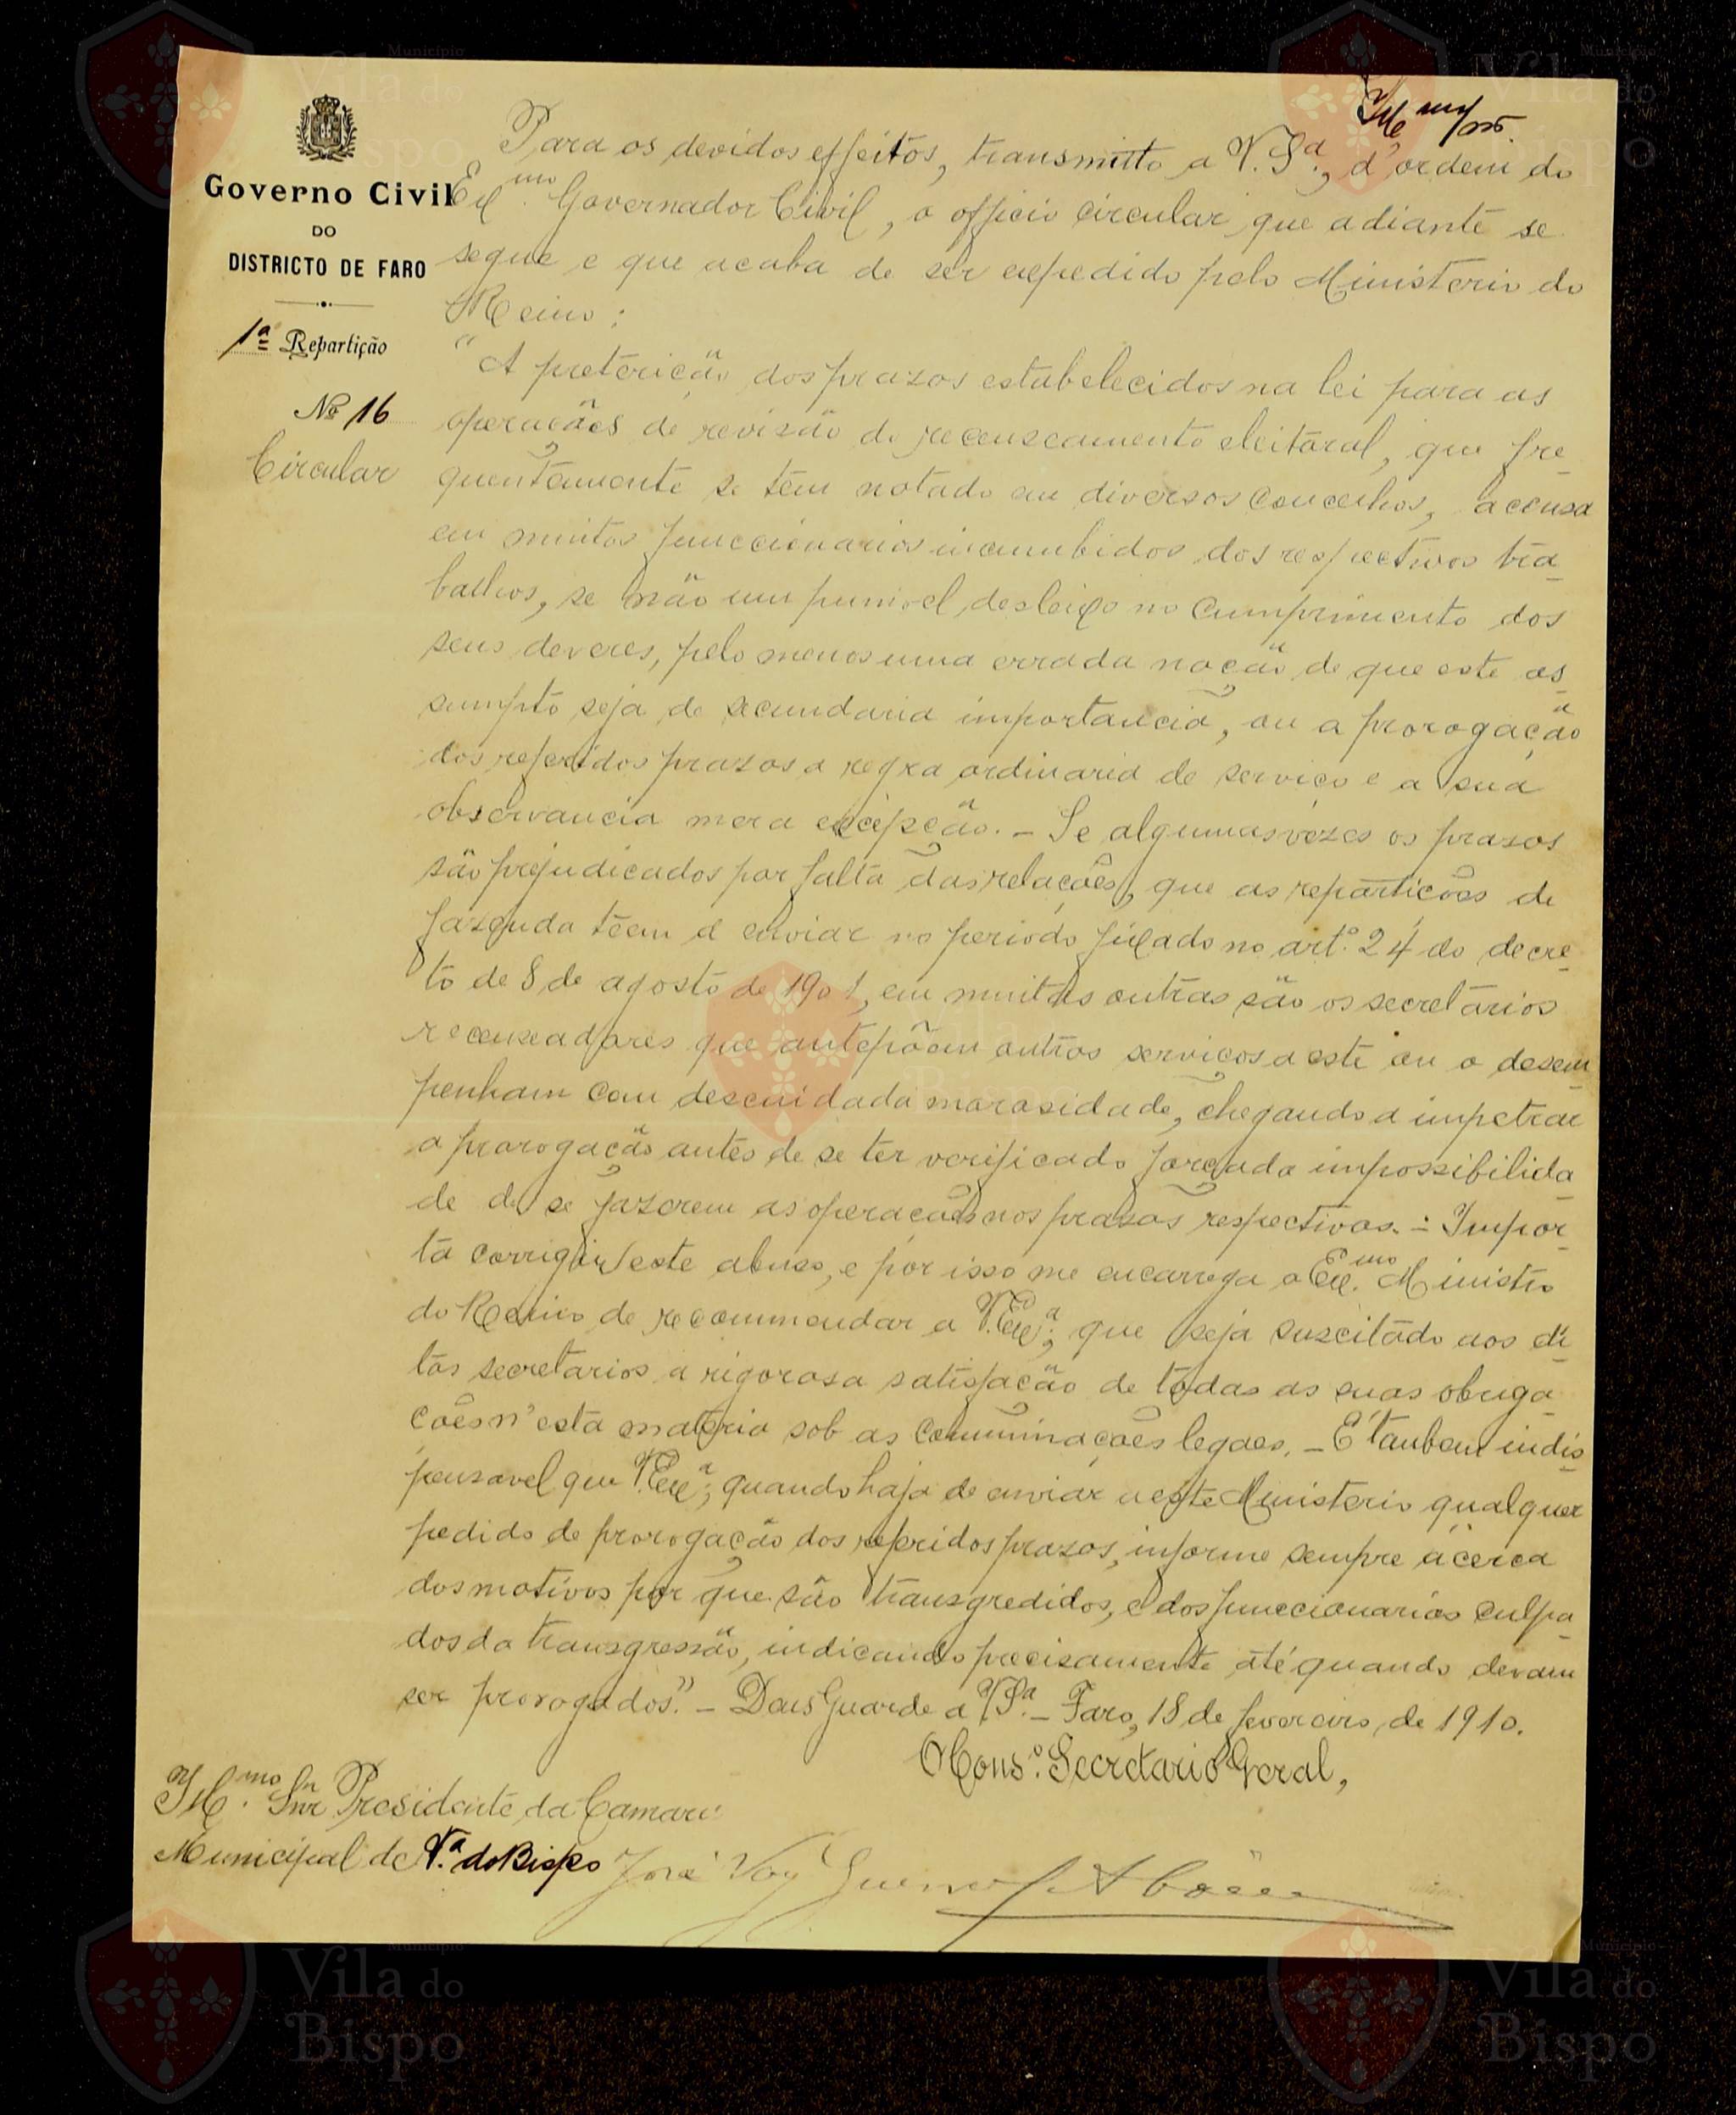 Governo Civil
DO
DISTRICTO DE FARO
1ª Repartição
Nº 16
Circular
Para os devidos effeitos, transmitto a V. Sª, d'ordem do
Exmo. Governador Civil, o officio circular que adiante se
segue e que acaba de ser expedido pelo Ministerio do
Reino:
"A preterição dos prazos estabelecidos na lei para as
operações de revisão do recenseamento eleitoral, que fre-
quentemente se têm notado em diversos concelhos, accusa
em muitos funccionarios incumbidos dos respectivos tra-
balhos, se não um punivel desleixo no cumprimento dos
seus deveres, pelo menos uma errada noção de que este as-
sumpto seja de secundaria importancia, ou a prorogação
dos referidos prazos a regra ordinaria de serviço e a sua
observancia mera excepção. - Se algumas vezes os prazos
são prejudicados por falta das relações, que as repartições de
fazenda têem d'enviar no periodo fixado no artº. 24 do decre-
to de 8 de agosto de 1901, em muitas outras são os secretarios
recenseadores que antepõem outros serviços a este ou o desem-
penham com descuidada morosidade, chegando a impetrar
a prorogação antes de se ter verificado forçada impossibilida-
de de se fazerem as operações nos prazos respectivos. - Impor-
ta corrigir este abuso, e por isso me encarrega o Exmo. Ministro
do Reino de recommendar a V. Exª, que seja suscitado aos di-
tos secretarios a rigorosa satisfação de todas as suas obriga-
ções n'esta materia sob as comminações legaes. - É tambem indis-
pensavel que V. Exª, quando haja de enviar a este Ministerio qualquer
pedido de prorogação dos referidos prazos, informe sempre ácerca
dos motivos por que são transgredidos, e dos funccionarios culpa-
dos da transgressão, indicando precisamente até quando devam
ser prorogados." - Deus Guarde a V. Sª. - Faro, 18 de fevereiro de 1910.
O Consº. Secretario Geral,
Illmo. Snr Presidente da Camara
Municipal de Vª. do Bispo
José Vaz Guerreiro
Município
Vila do
Bispo